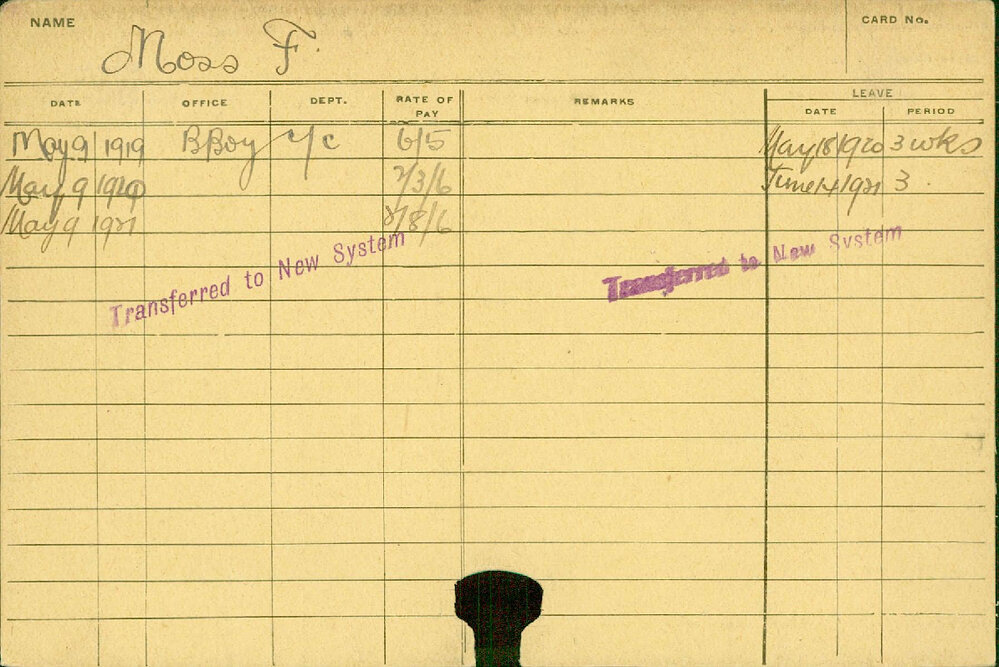 NAME Moss F. CARD No.
LEAVE
DATE OFFICE DEPT. RATE OF PAY REMARKS DATE PERIOD
May 9 1919 BBoy c/c 6/5 May 18 1920 3 wks
May 9 1920 7/3/6 June 14 1921 3
May 9 1921 /8/6
Transferred to New System Transferred to New System